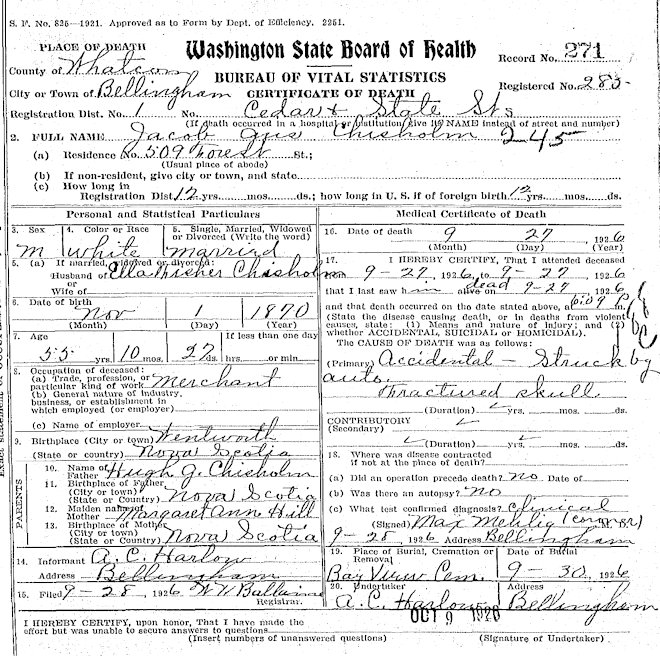 S. F. No. 825—1921. Approved as to Form by Dept. of Efficiency. 2251.
PLACE OF DEATH
Washington State Board of Health
County of Whatcom
BUREAU OF VITAL STATISTICS
Record No. 271
City or Town of Bellingham
CERTIFICATE OF DEATH
Registered No. 285
Registration Dist. No. 1 No. Cedar & State Sts
(If death occurred in a hospital or institution give its NAME instead of street and number)
2. FULL NAME Jacob Chisholm 245
(a) Residence No. 509 Forest St.;
(Usual place of abode)
(b) If non-resident, give city or town, and state
(c) How long in
Registration Dist. 12 yrs. mos. ds.; how long in U. S. if of foreign birth 12 yrs. mos. ds.
Personal and Statistical Particulars
3. Sex
4. Color or Race
5. Single, Married, Widowed or Divorced (Write the word)
M white married
5. (a) If married, widowed or divorced:
Husband of Ella Chisholm
or
Wife of
6. Date of birth
Nov 1 1870
(Month) (Day) (Year)
7. Age
If less than one day
55 yrs. 10 mos. 27 ds. hrs. or min.
8. Occupation of deceased:
(a) Trade, profession, or
particular kind of work Merchant
(b) General nature of industry,
business, or establishment in
which employed (or employer)
(c) Name of employer
9. Birthplace (City or town) Wentworth
(State or country) Nova Scotia
PARENTS
10. Name of
Father Hugh G. Chisholm
11. Birthplace of Father
(City or town)
(State or Country) Nova Scotia
12. Maiden name of
Mother Margaret Ann Hill
13. Birthplace of Mother
(City or town)
(State or Country) Nova Scotia
14. Informant A. C. Harlow
Address Bellingham
15. Filed 9-28, 1926
Registrar.
Medical Certificate of Death
16. Date of death 9 27, 1926
(Month) (Day) (Year)
17. I HEREBY CERTIFY, That I attended deceased
from 9-27, 1926, to 9-27, 1926
that I last saw him dead alive on 9-27, 1926
and that death occurred on the date stated above, 6:09 P.m.
(State the disease causing death, or in deaths from violent
causes, state: (1) Means and nature of injury; and (2)
whether ACCIDENTAL, SUICIDAL or HOMICIDAL).
The CAUSE OF DEATH was as follows:
(Primary) Accidental — Struck by
auto.
Fractured skull
(Duration) yrs. mos. ds.
CONTRIBUTORY
(Secondary)
(Duration) yrs. mos. ds.
18. Where was disease contracted
if not at the place of death?
(a) Did an operation precede death? no Date of
(b) Was there an autopsy? no
(c) What test confirmed diagnosis? clinical
(Signed) Max Mehlig (coroner) M. D.
9-28, 1926 Address Bellingham
19. Place of Burial, Cremation or Removal
Date of Burial
Bay View Cem. 9-30, 1926
20. Undertaker Address
A. C. Harlow Bellingham
OCT 9 1926
I HEREBY CERTIFY, upon honor, That I have made the
effort but was unable to secure answers to questions
(Insert numbers of unanswered questions) (Signature of Undertaker)